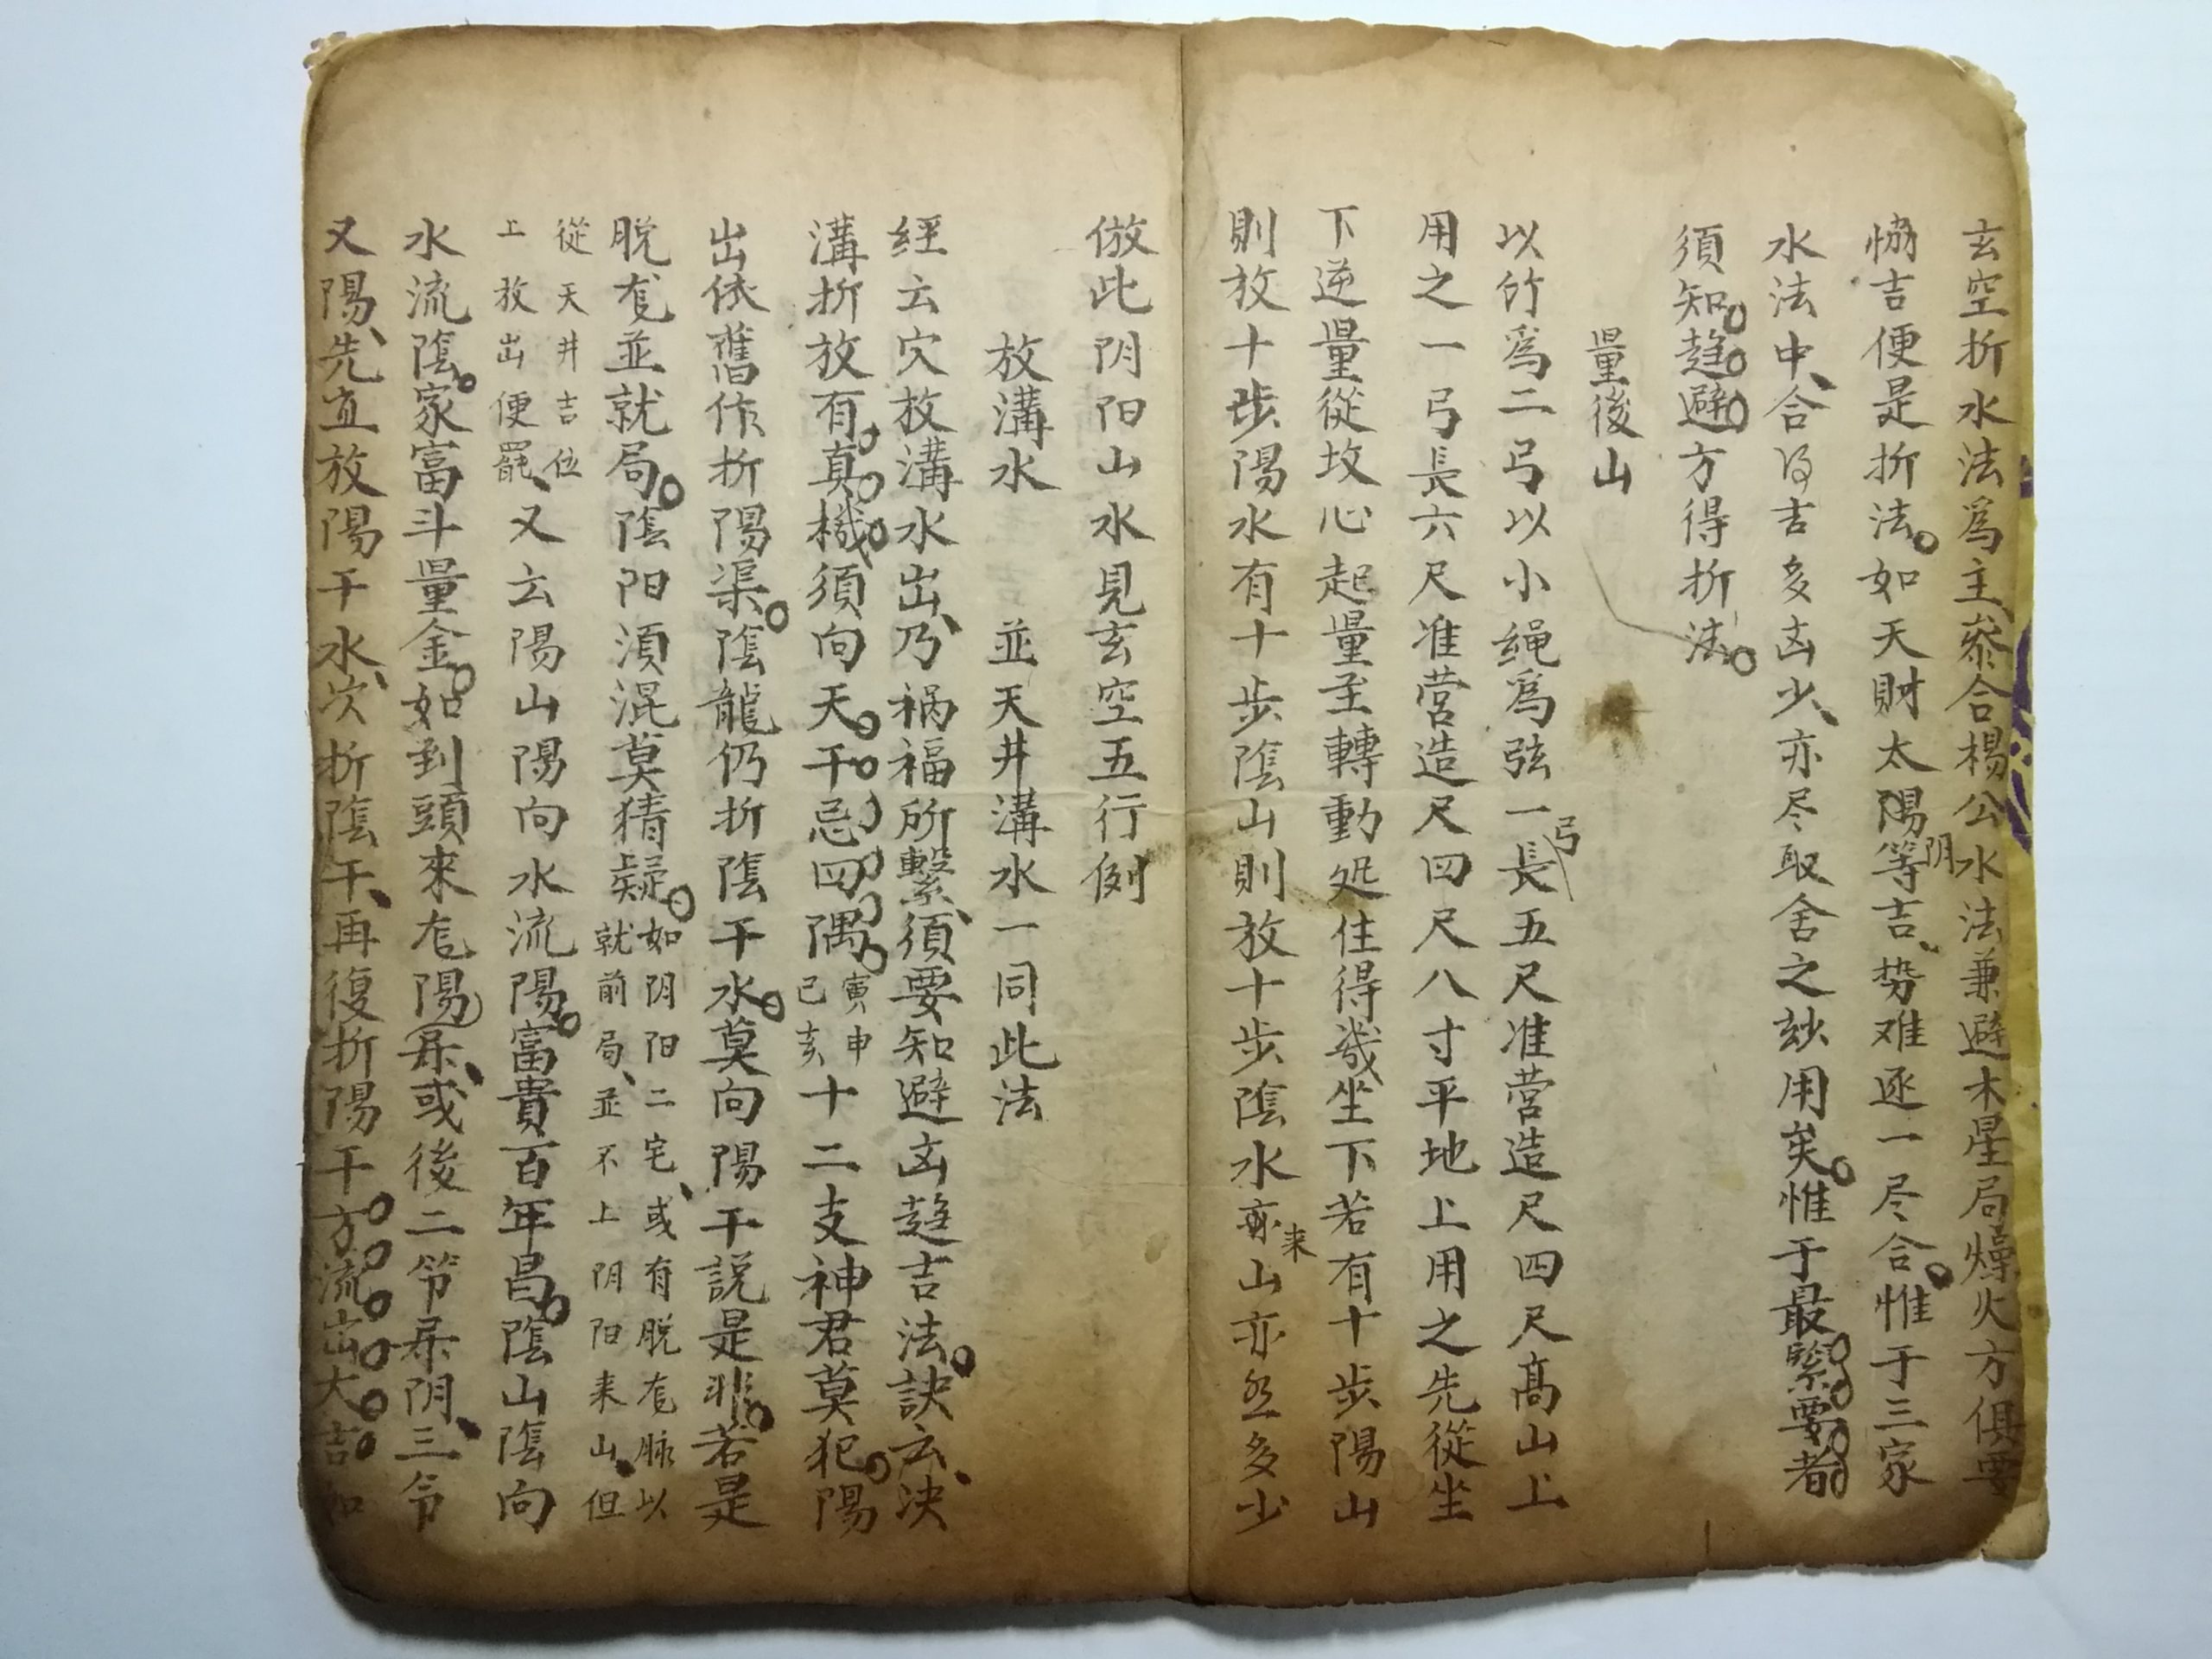 玄空折水法爲主叅合楊公水法兼避木星局燥火方俱要
恊吉便是折法如天財太陽阴等吉势难逐一尽合惟于三家
水法中合得吉多凶少亦尽取舍之玅用矣惟于最緊要者
須知趋避方得折法
量後山
以竹爲二弓以小绳爲弦一弓長五尺准营造尺四尺高山上
用之一弓長六尺准营造尺四尺八寸平地上用之先從坐
下逆量從坟心起量至轉動処住得幾坐下若有十步陽山
則放十步陽水有十步陰山則放十步陰水來山亦然多少
倣此阴阳山水見玄空五行例
放溝水 並天井溝水一同此法
经云穴放溝水出乃禍福所繫須要知避凶趋吉法訣云决
溝折放有真機須向天干忌四隅寅申己亥十二支神君莫犯陽
出依舊作折陽渠陰龍仍折陰干水莫向陽干説是非若是
脱龙並就局陰阳須混莫猜疑如阴阳二宅或有脱龙脉以
就前局並不上阴阳来山但
從天井吉位
上放出便罷又云陽山陽向水流陽富貴百年昌陰山陰向
水流陰家富斗量金如到頭來龙陽是或後二节是阴三节
又陽先直放陽干水次折陰干再復折陽干方流出大吉如